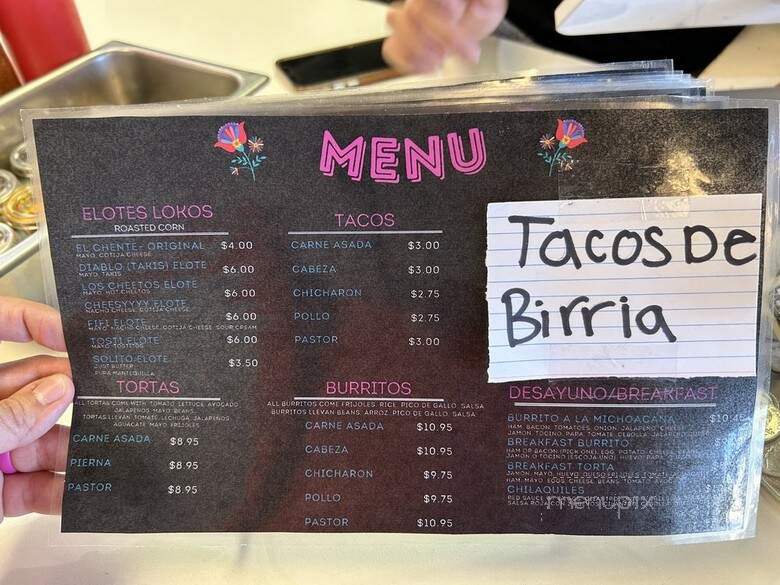 MENU
ELOTES LOKOS
ROASTED CORN
EL CHENTE- ORIGINAL $4.00
MAYO, COTIJA CHEESE
DIABLO (TAKIS) ELOTE $6.00
MAYO, TAKIS
LOS CHEETOS ELOTE $6.00
MAYO, HOT CHEETOS
CHEESYYYY ELOTE $6.00
NACHO CHEESE, COTIJA CHEESE
ELOTE $6.00
NACHO CHEESE, COTIJA CHEESE, SOUR CREAM
TOSTI ELOTE $6.00
MAYO, TOSTITOS
SOLITO ELOTE $3.50
JUST BUTTER
PURA MANTEQUILLA
TACOS
CARNE ASADA $3.00
CABEZA $3.00
CHICHARON $2.75
POLLO $2.75
PASTOR $3.00
Tacos De
Birria
TORTAS
ALL TORTAS COME WITH TOMATO, LETTUCE, AVOCADO,
JALAPENOS, MAYO, BEANS
TORTAS LLEVAN TOMATE, LECHUGA, JALAPENOS,
AGUACATE, MAYO, FRIJOLES
CARNE ASADA $8.95
PIERNA $8.95
PASTOR $8.95
BURRITOS
ALL BURRITOS COME FRIJOLES, RICE, PICO DE GALLO, SALSA
BURRITOS LLEVAN BEANS, ARROZ, PICO DE GALLO, SALSA
CARNE ASADA $10.95
CABEZA $10.95
CHICHARON $9.75
POLLO $9.75
PASTOR $10.95
DESAYUNO/BREAKFAST
BURRITO A LA MICHOACANA
HAM, BACON, TOMATOES, ONION,
JAMON, TOCINO, PAPA, TOMATE, CEBOLLA,
BREAKFAST BURRITO
HAM OR BACON (PICK ONE), EGG, POTATO, CHEESE,
JAMON O TOCINO (ESCOJA UNO),
BREAKFAST TORTA
JAMON, MAYO, HUEVO, QUESO, FRIJOLES,
HAM, MAYO, EGGS, CHEESE, BEANS,
CHILAQUILES
RED SAUCE
SALSA ROJA
menupix